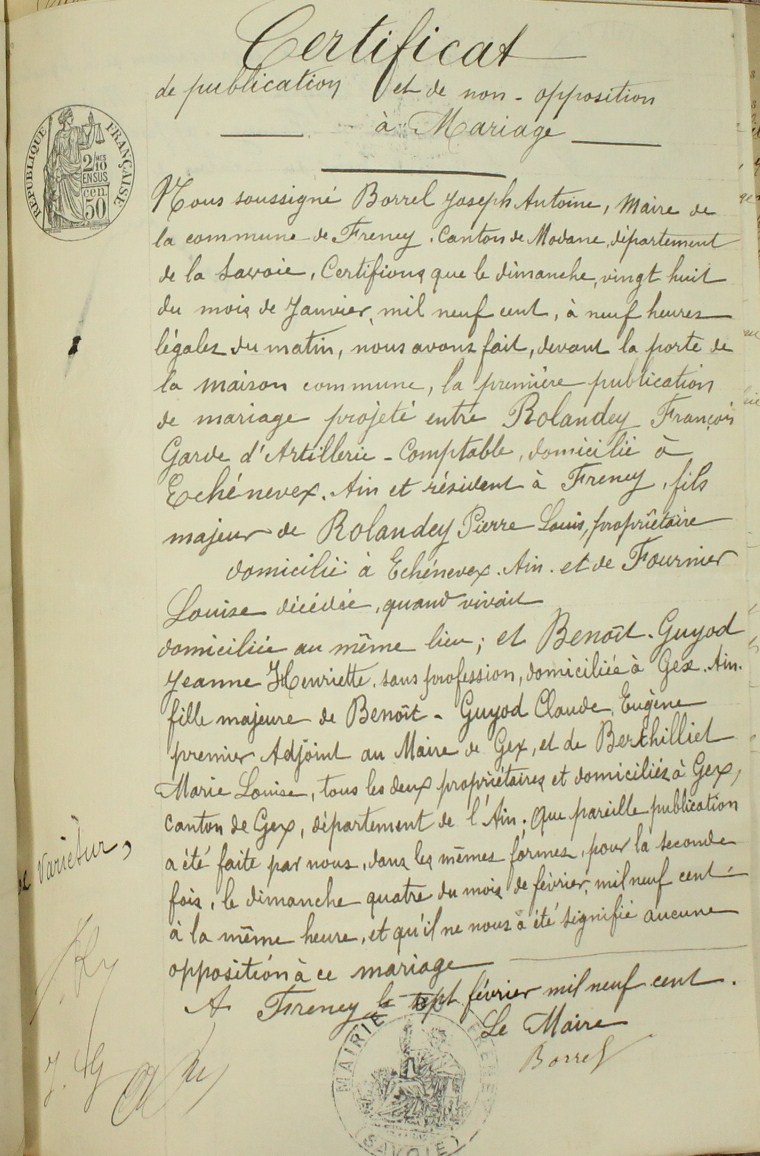 Certificat
de publication et de non - opposition
à Mariage
RÉPUBLIQUE FRANÇAISE
2/10
EN SUS
50
cen.
Nous soussigné Borrel Joseph Antoine, Maire de
la commune de Freney, Canton de Modane, département
de la Savoie, Certifions que le dimanche, vingt huit
du mois de Janvier, mil neuf cent, à neuf heures
légales du matin, nous avons fait, devant la porte de
la maison commune, la première publication
de mariage projeté entre Rolandey François
Garde d'Artillerie - Comptable, domicilié à
Echénevex. Ain et résident à Freney, fils
majeur de Rolandey Pierre Louis, propriétaire
domicilié à Echénevex. Ain. et de Fournier
Louise décédée, quand vivait
domiciliée au même lieu; et Benoît - Guyod
Jeanne Henriette, sans profession, domiciliée à Gex. Ain.
fille majeure de Benoît - Guyod Claude, Eugène
premier Adjoint au Maire de Gex, et de Berthilliet
Marie Louise, tous les deux propriétaires et domiciliés à Gex,
canton de Gex, département de l'Ain. Que pareille publication
a été faite par nous, dans les mêmes formes, pour la seconde
fois, le dimanche quatre du mois de février, mil neuf cent
à la même heure, et qu'il ne nous a été signifié aucune
opposition à ce mariage
A Freney le sept février mil neuf cent.
Le Maire
Borrel
MAIRIE DE FRENEY
(SAVOIE)
ne varietur,